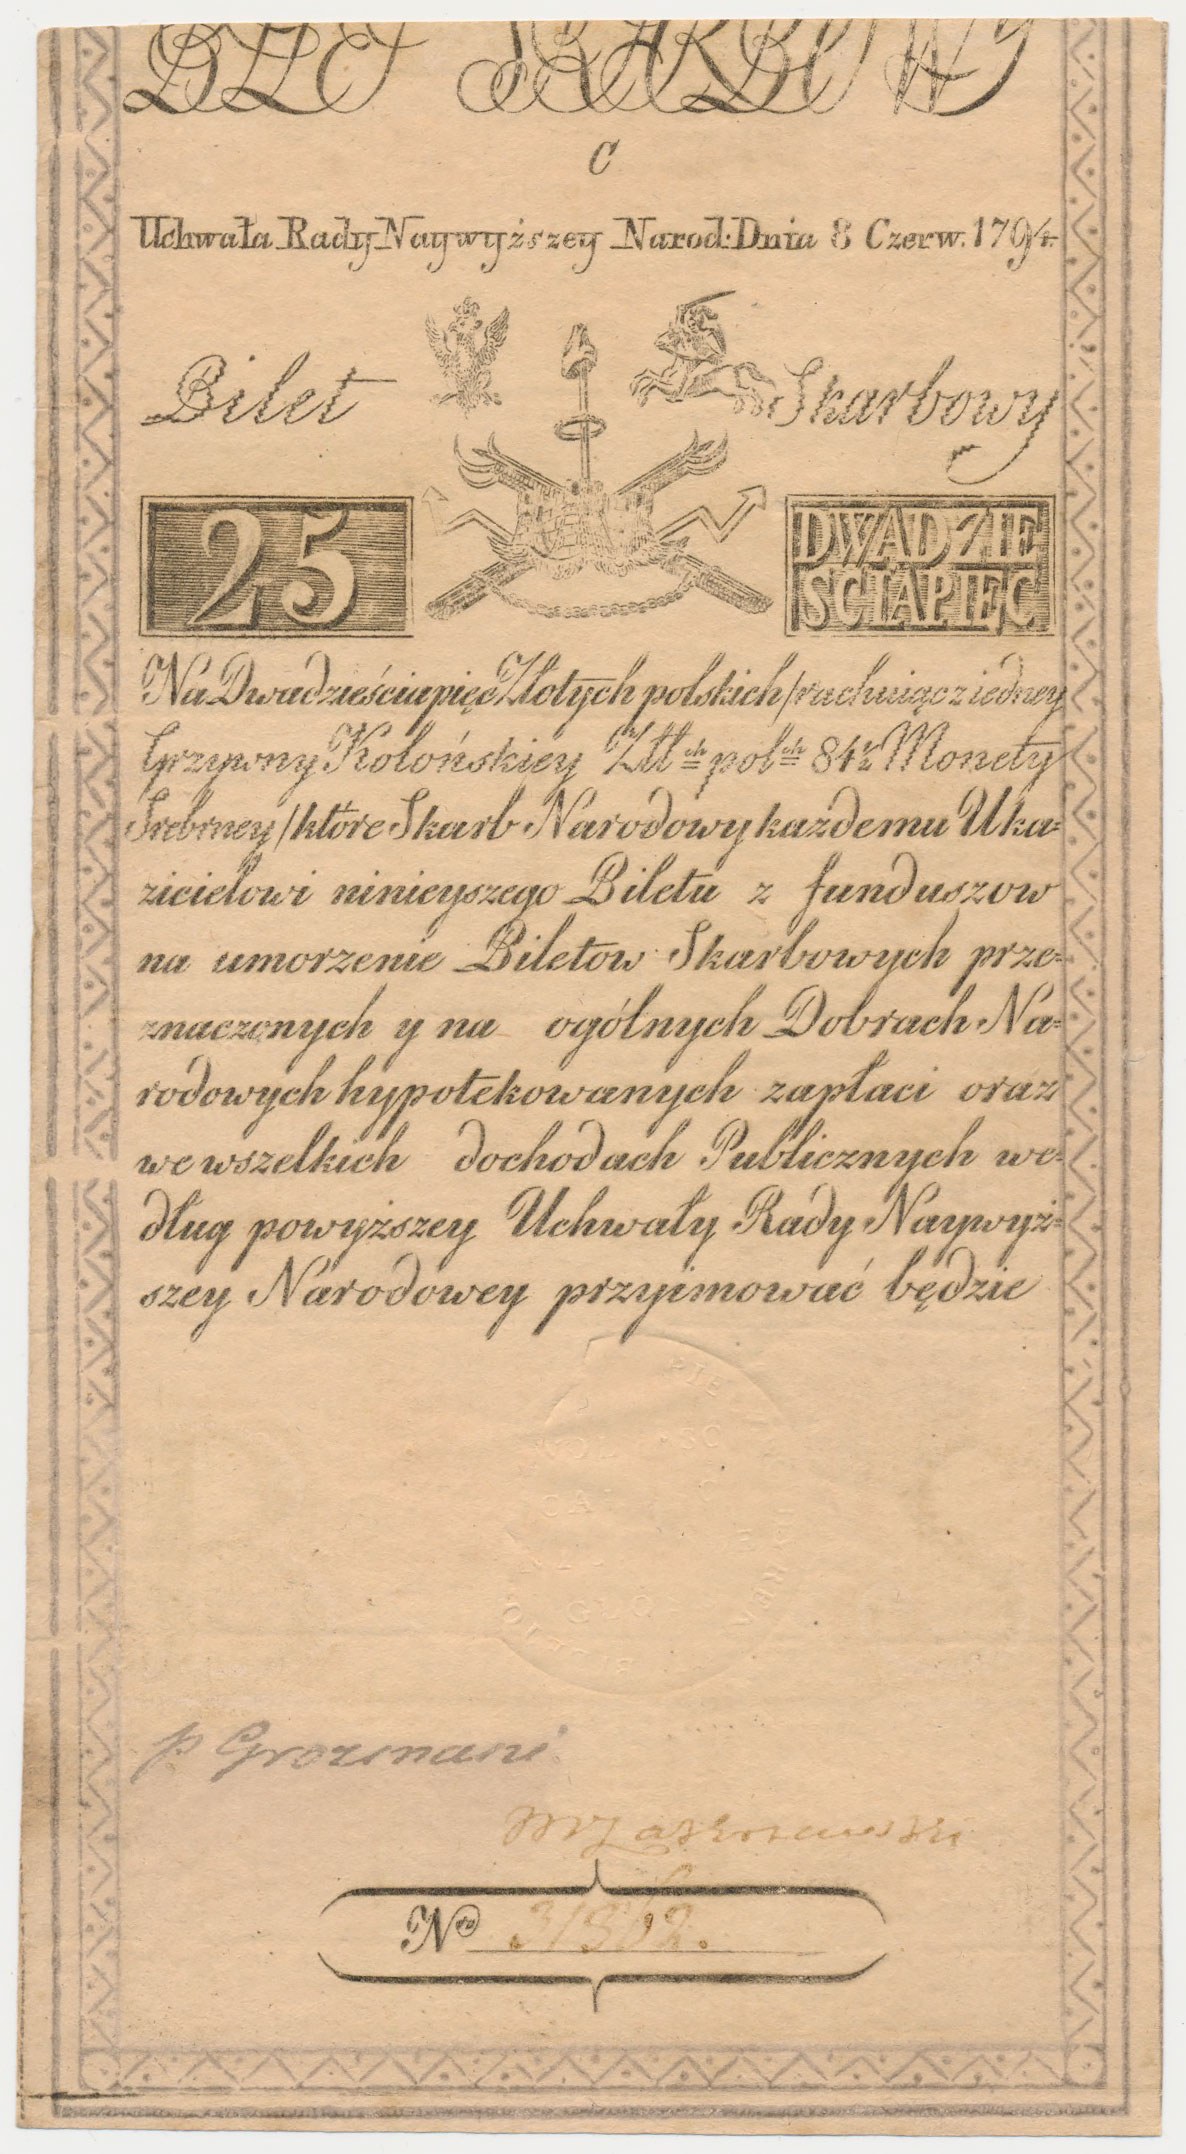 BILET SKARBOWY
C
Uchwała Rady Naywyższey Narod: Dnia 8 Czerw. 1794.
Bilet Skarbowy
25 DWADZIE
SCIAPIĘC
Na Dwadzieściapięć Złotych polskich /rachuiąc z iedney
Grzywny Kolońskiey Złł ch pol ch 84½ Monety
Srebrney/ które Skarb Narodowy każdemu Uka=
zicielowi ninieyszego Biletu z funduszow
na umorzenie Biletow Skarbowych prze=
znaczonych y na ogólnych Dobrach Na=
rodowych hypotekowanych zapłaci oraz
we wszelkich dochodach Publicznych we=
dług powyższey Uchwały Rady Naywyż=
szey Narodowey przyimować będzie
p Grozmani.
M Zakrzewski
No 31362.